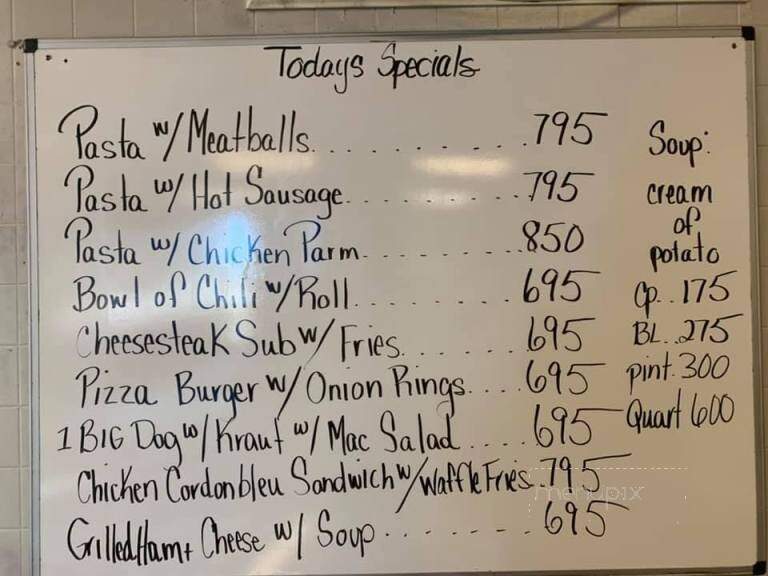 Todays Specials
Pasta w/ Meatballs.............795
Pasta w/ Hot Sausage...........795
Pasta w/ Chicken Parm..........850
Bowl of Chili w/ Roll..........695
Cheesesteak Sub w/ Fries.......695
Pizza Burger w/ Onion Rings....695
1 BIG Dog w/ Kraut w/ Mac Salad....695
Chicken Cordonbleu Sandwich w/ Waffle Fries.795
Grilled Ham + Cheese w/ Soup.......695
Soup:
cream
of
potato
Cp..175
BL..275
pint.300
Quart 600
menupix